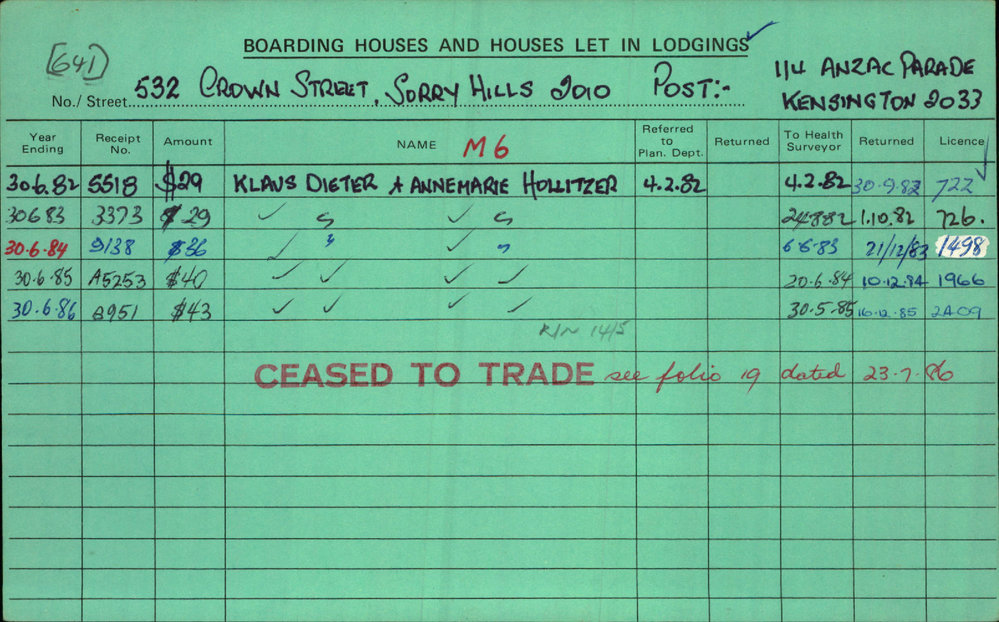 [641]
BOARDING HOUSES AND HOUSES LET IN LODGINGS
No./ Street 532 CROWN STREET, SORRY HILLS 2010 POST:- 114 ANZAC PARADE
KENSINGTON 2033
Year Ending Receipt No. Amount NAME M6 Referred to Plan. Dept. Returned To Health Surveyor Returned Licence
30.6.82 5518 $29 KLAUS DIETER & ANNEMARIE HOLLITZER 4.2.82 4.2.82 30.9.82 722
30683 3373 $29 ✓ " ✓ " 24.8.82 1.10.82 726.
30.6.84 9138 $36 ✓ " ✓ " 6.6.83 21/12/83 1498
30.6.85 A5253 $40 ✓ ✓ ✓ ✓ 20.6.84 10.12.84 1966
30.6.86 8951 $43 ✓ ✓ ✓ ✓ 30.5.85 16.12.85 2409
R/N 14/5
CEASED TO TRADE see folio 19 dated 23.7.86